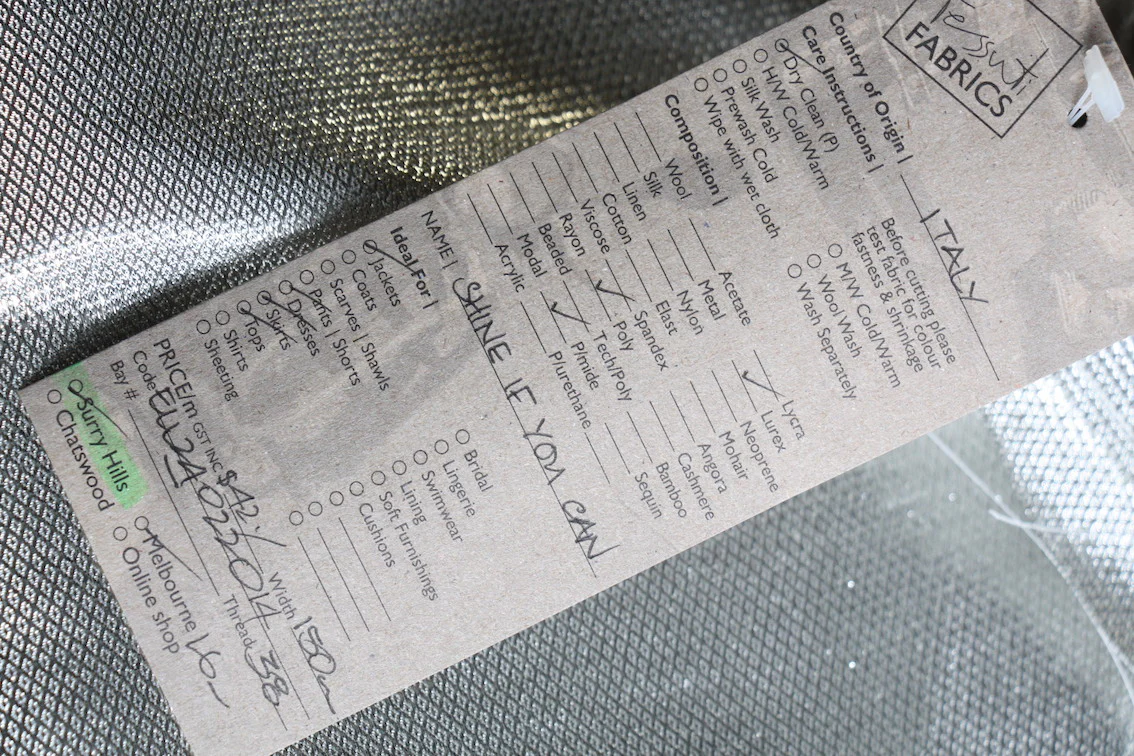 Tessuti
FABRICS
Country of Origin | ITALY
Care Instructions |
Dry Clean (P)
H/W Cold/Warm
Silk Wash
Prewash Cold
Wipe with wet cloth
Before cutting please
test fabric for colour
fastness & shrinkage
M/W Cold/Warm
Wool Wash
Wash Separately
Composition |
Wool
Silk
Linen
Cotton
Viscose
Rayon
Beaded
Modal
Acrylic
Acetate
Metal
Nylon
Elast
Spandex
✓ Poly
Tech/Poly
✓ P/mide
P/urethane
Lycra
✓ Lurex
Neoprene
Mohair
Angora
Cashmere
Bamboo
Sequin
NAME | SHINE IF YOU CAN
Ideal For |
Jackets
Coats
Scarves | Shawls
Pants | Shorts
Dresses
Skirts
Tops
Shirts
Sheeting
Bridal
Lingerie
Swimwear
Lining
Soft Furnishings
Cushions
PRICE/m GST INC $42/ Width 150
Code
Bay # Thread 38
Surry Hills
Chatswood
Melbourne
Online shop